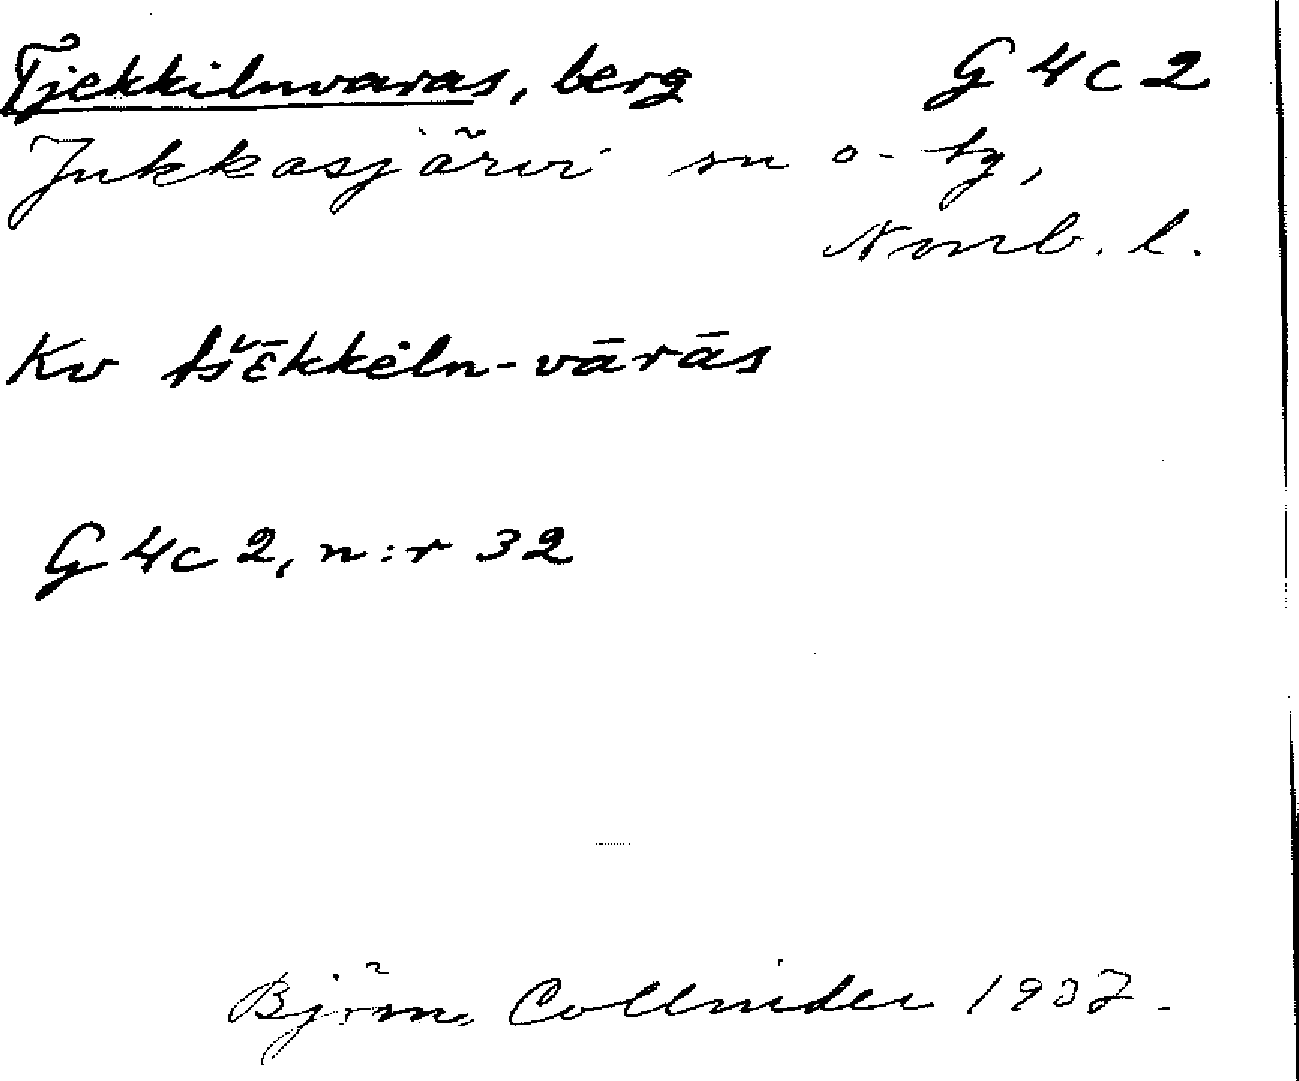 Tjekkilnvaras, berg G 4 c 2
Jukkasjärvi sn o. tg,
Norrb. l.
Kv tšɛ̄kkėln-vārās
G 4 c 2, n:r 32
Björn Collinder 1937.